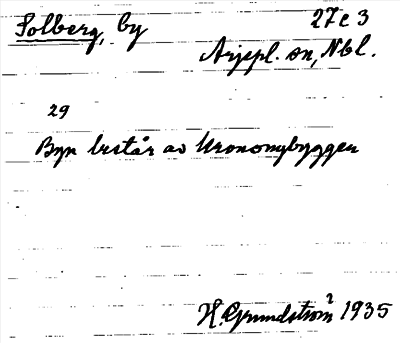 Solberg, by 27c3
Arjepl. sn, Nbl.
29
Byn består av Kronomybyggen
H. Grundström 1935